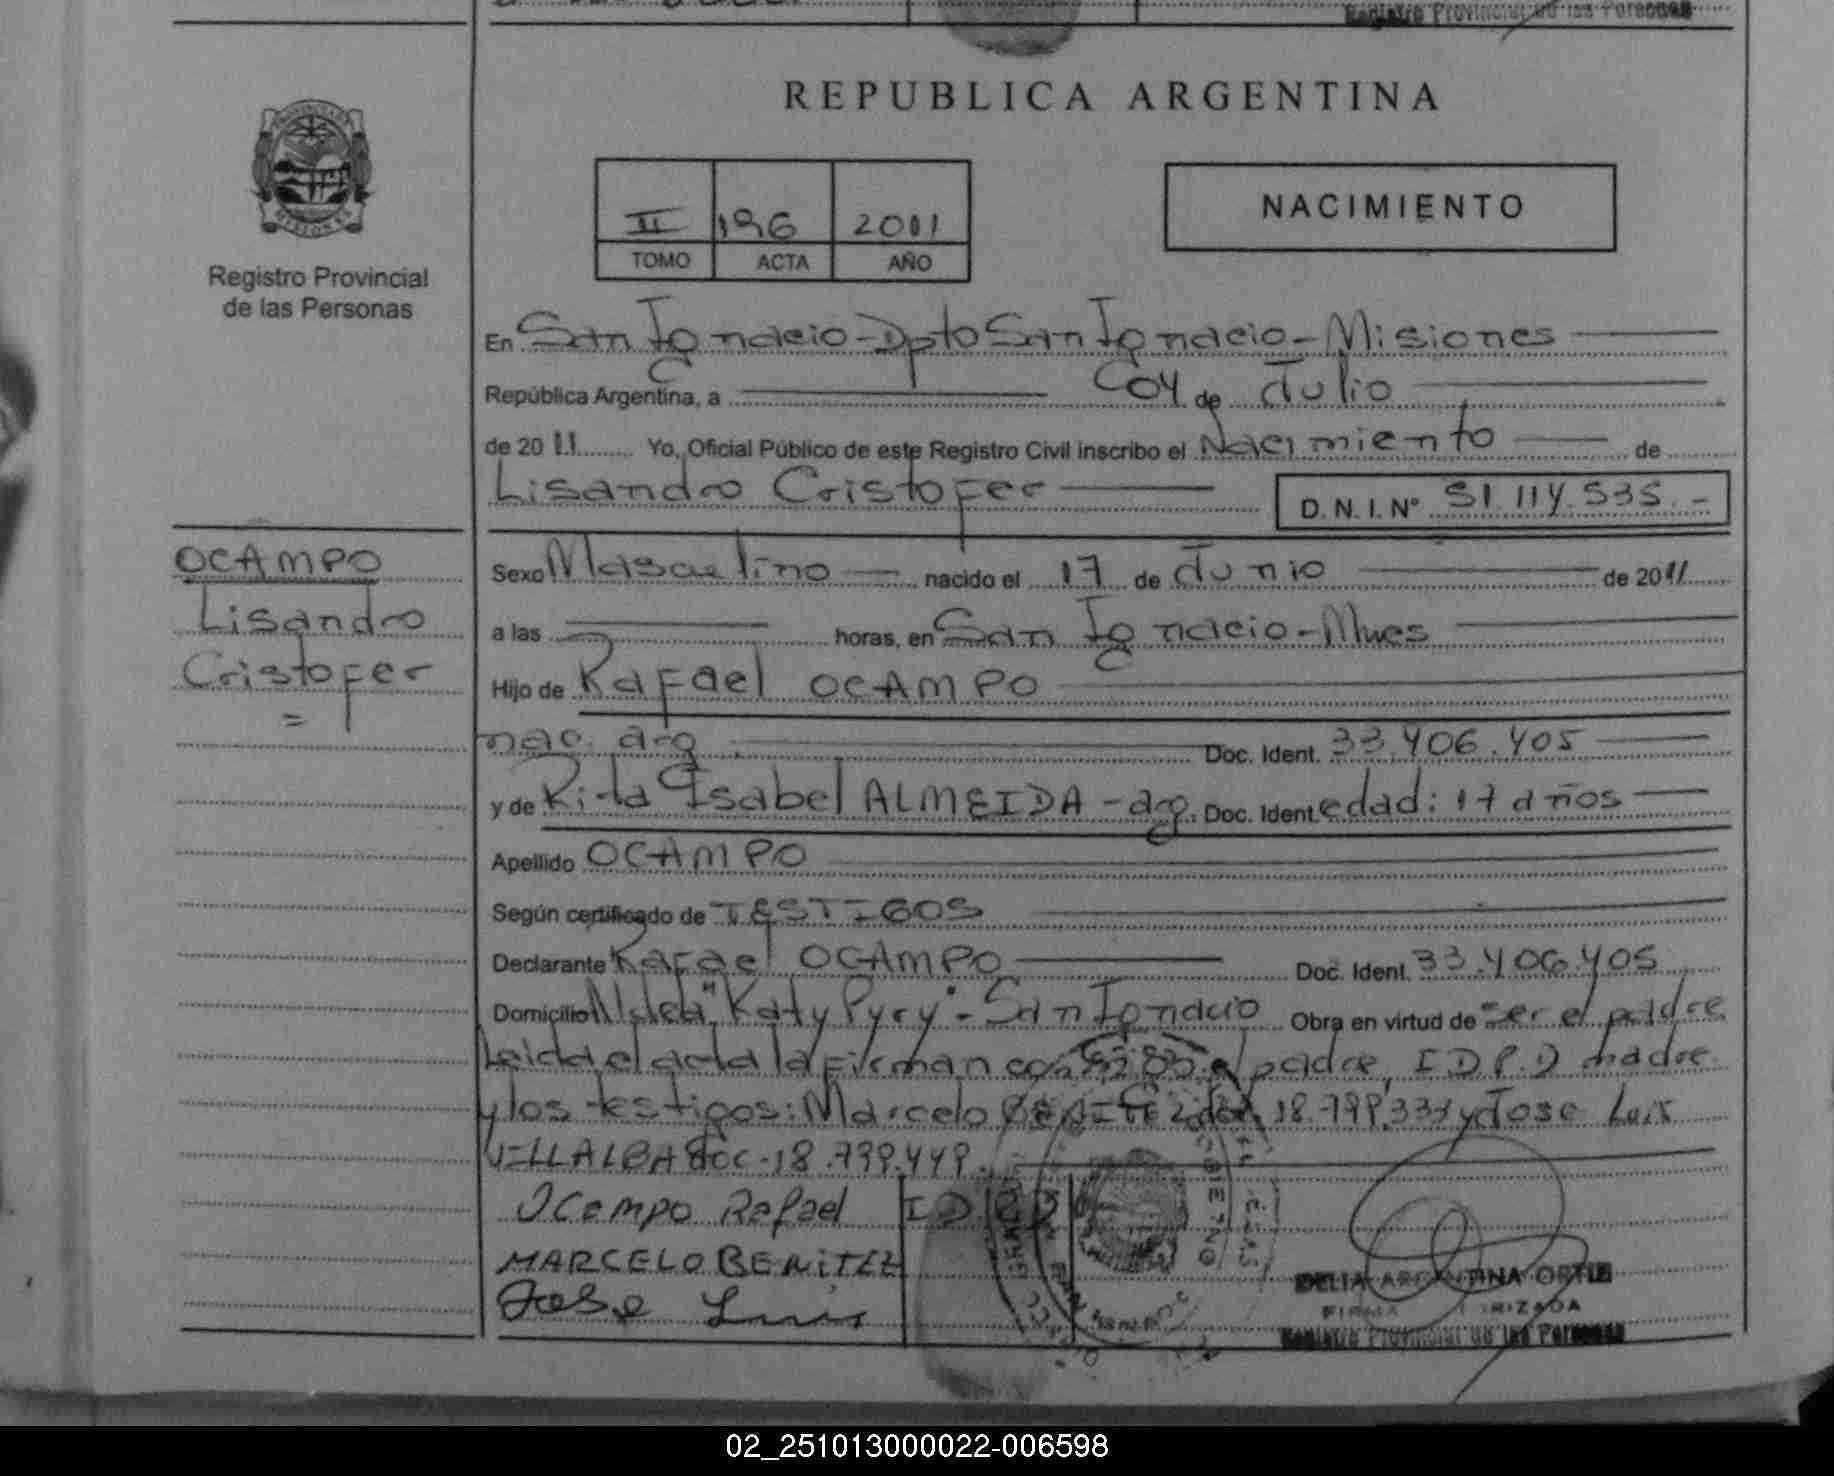 Registro Provincial de las Personas
REPUBLICA ARGENTINA
PROVINCIA DE
MISIONES
Registro Provincial
de las Personas
II 196 2011
TOMO ACTA AÑO
NACIMIENTO
En San Ignacio-Dpto San Ignacio-Misiones
República Argentina, a 04 de Julio
de 2011 Yo, Oficial Público de este Registro Civil inscribo el Nacimiento de
Lisandro Cristofer
D. N. I. Nº 51.114.535.-
OCAMPO
Lisandro
Cristofer
=
Sexo Masculino nacido el 17 de Junio de 2011
a las horas, en San Ignacio-Mnes
Hijo de Rafael OCAMPO
nac. arg. Doc. Ident. 33.406.405
y de Rita Isabel ALMEIDA - arg. Doc. Ident edad: 17 años
Apellido OCAMPO
Según certificado de TESTIGOS
Declarante Rafael OCAMPO Doc. Ident. 33.406.405
Domicilio Aldea "Katy Pyry" - San Ignacio Obra en virtud de ser el padre
Leida el acta la firman el padre, I.D.P.D madre
y los testigos: Marcelo BENITEZ doc. 18.799.333 y Jose Luis
VILLALBA doc. 18.799.449.
Ocampo Rafael I D P D
MARCELO BENITEZ
Jose Luis
DELIA ARGENTINA ORTIZ
FIRMA AUTORIZADA
Registro Provincial de las Personas
02_251013000022-006598